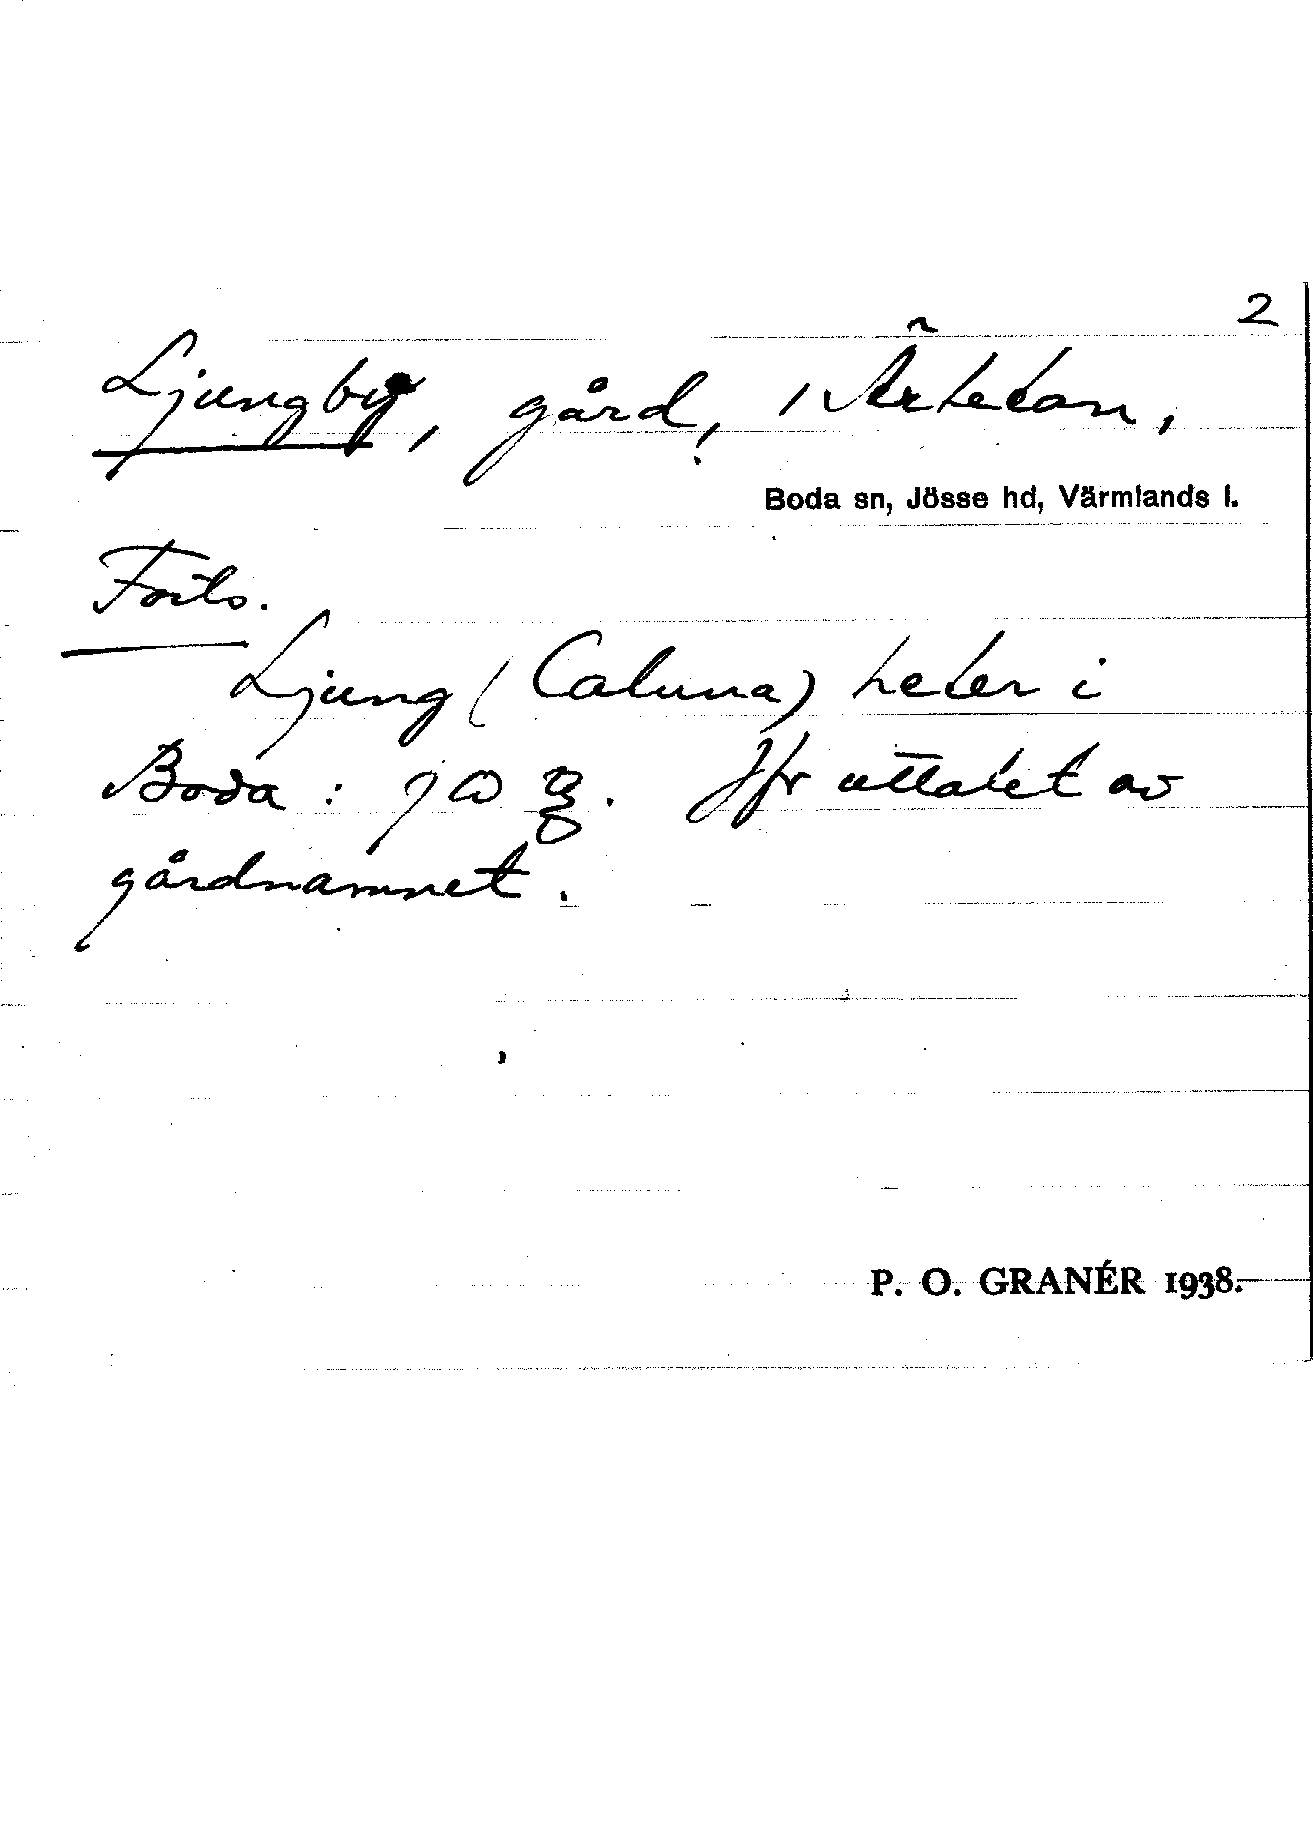 2
Ljungby, gård, i Ärtetan,
Boda sn, Jösse hd, Värmlands l.
Forts.
Ljung (Caluna) heter i
Boda : Jfr uttalet av
gårdnamnet.
P. O. GRANÉR 1938.